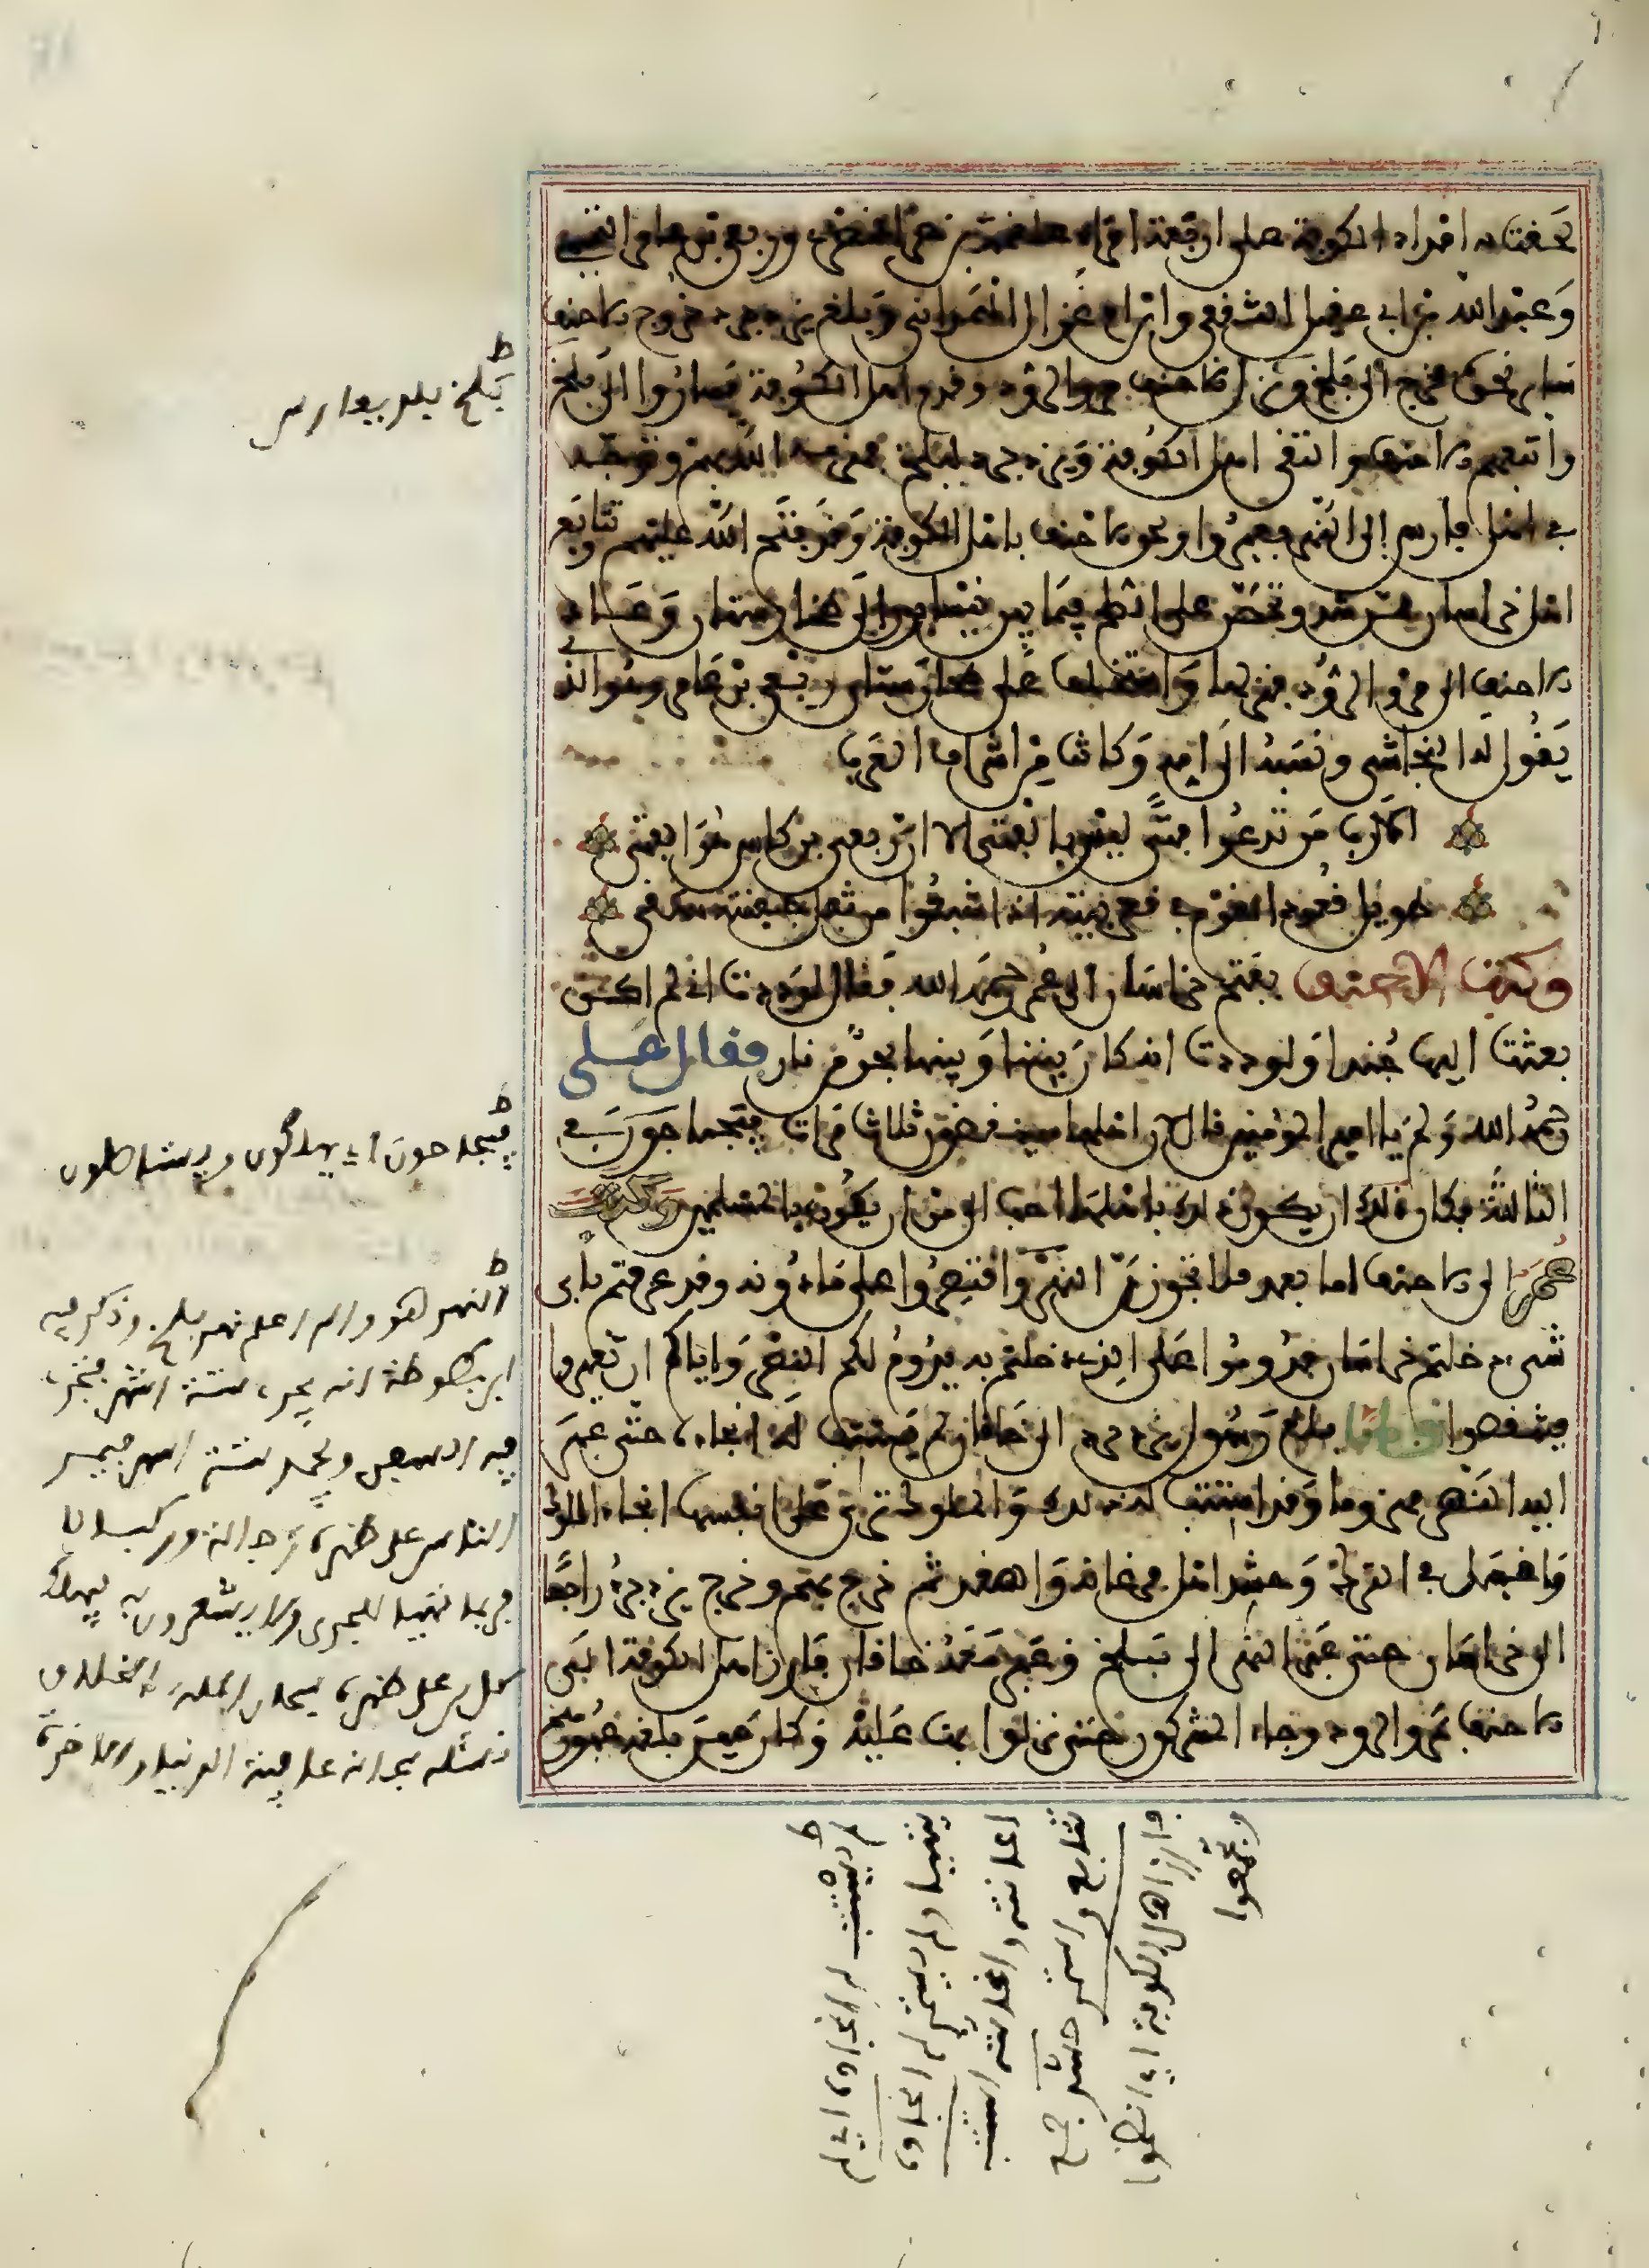 لحقت به امداد الكوفة على اربعة امراء علقمة بن النضر وربعي بن عامر التميمي
وعبد الله بن ابي عقيل الثقفي وابن ام غزال الهمداني وبلغ يزدجرد خروج الاحنف
سائرا نحوه فخرج الى بلخ ونزل الاحنف مرو الروذ وقدم اهل الكوفة فساروا الى بلخ
واتبعهم الاحنف والتقى اهل الكوفة ويزدجرد ببلخ فهزمه الله بهم وتوجه
في اهل فارس الى النهر فعبروا ولحق الاحنف باهل الكوفة وقد فتح الله عليهم وتتابع
اهل خراسان ممن شذ وتحصن على الصلح فيما بين نيسابور الى طخارستان وعاد
الاحنف الى مرو الروذ فنزلها واستخلف على طخارستان ربعي بن عامر وهو الذي
يقول له النجاشي ونسبه الى امه وكانت من اشراف العرب
الا رب من تدعوا فتى ليس بالفتى الا ان ربعي بن كاس هو الفتى
طويل قعود القوم في قعر بيته اذا شبعوا من ثفل جفنته سقى
وكتب الاحنف بفتح خراسان الى عمر رحمه الله فقال لوددت اني لم اكن
بعثت اليها جندا ولوددت انه كان بيننا وبينها بحر من نار فقال علي
رحمه الله ولم يا امير المومنين قال لان اهلها سينفضون ثلاث مرات فيجتاحون في
الثالثة فكان ذلك ان يكون ذلك باهلها احب الي من ان يكون بالمسلمين وكتب
عمر الى الاحنف اما بعد فلا تجوزن النهر واقتصروا على ما دونه وقد عرفتم باي
شيء دخلتم خراسان فدوموا على الذي دخلتم به يدوم لكم النصر واياكم ان تعبروا
فتنفضوا ولما بلغ رسول يزدجرد الى خاقان لم يستتب له انجاده حتى عبر
اليه النهر مهزوما وقد استتب له ذلك والملوك ترى على انفسها انجاد الملوك
فاقبل في الترك وحشر اهل فرغانة والصغد ثم خرج بهم وخرج يزدجرد راجعا
الى خراسان حتى عبر النهر الى بلخ وعبر معه خاقان فارز اهل الكوفة الى
الاحنف بمرو الروذ وجاء المشركون حتى نزلوا بها عليه وكان حين بلغه عبور
بلخ بلد بفارس
فيجتاحون اي يهلكون ويستاصلون
النهر هو والله اعلم نهر بلخ وذكر فيه
ابن بطوطة انه يجمد ستة اشهر فتجري
فيه السفن ويجمد ستة اشهر فيسير
الناس على ظهره
لم يستتب له انجاده اي لم
يتهيا ولم يتيسر له انجاده
اعانته واغاثته استتب
تتابع واستمر حشر جمع
فارز اهل الكوفة اي انضموا
وتجمعوا